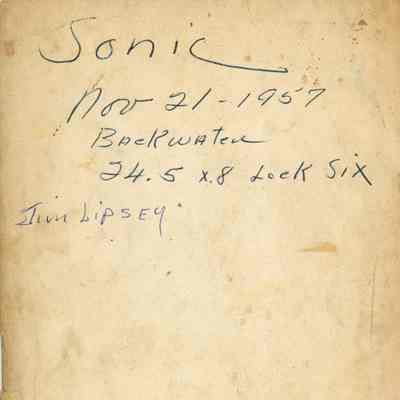 Sonic
Nov 21-1957
Backwater
24.5 x.8 Lock Six
Jim Lipsey